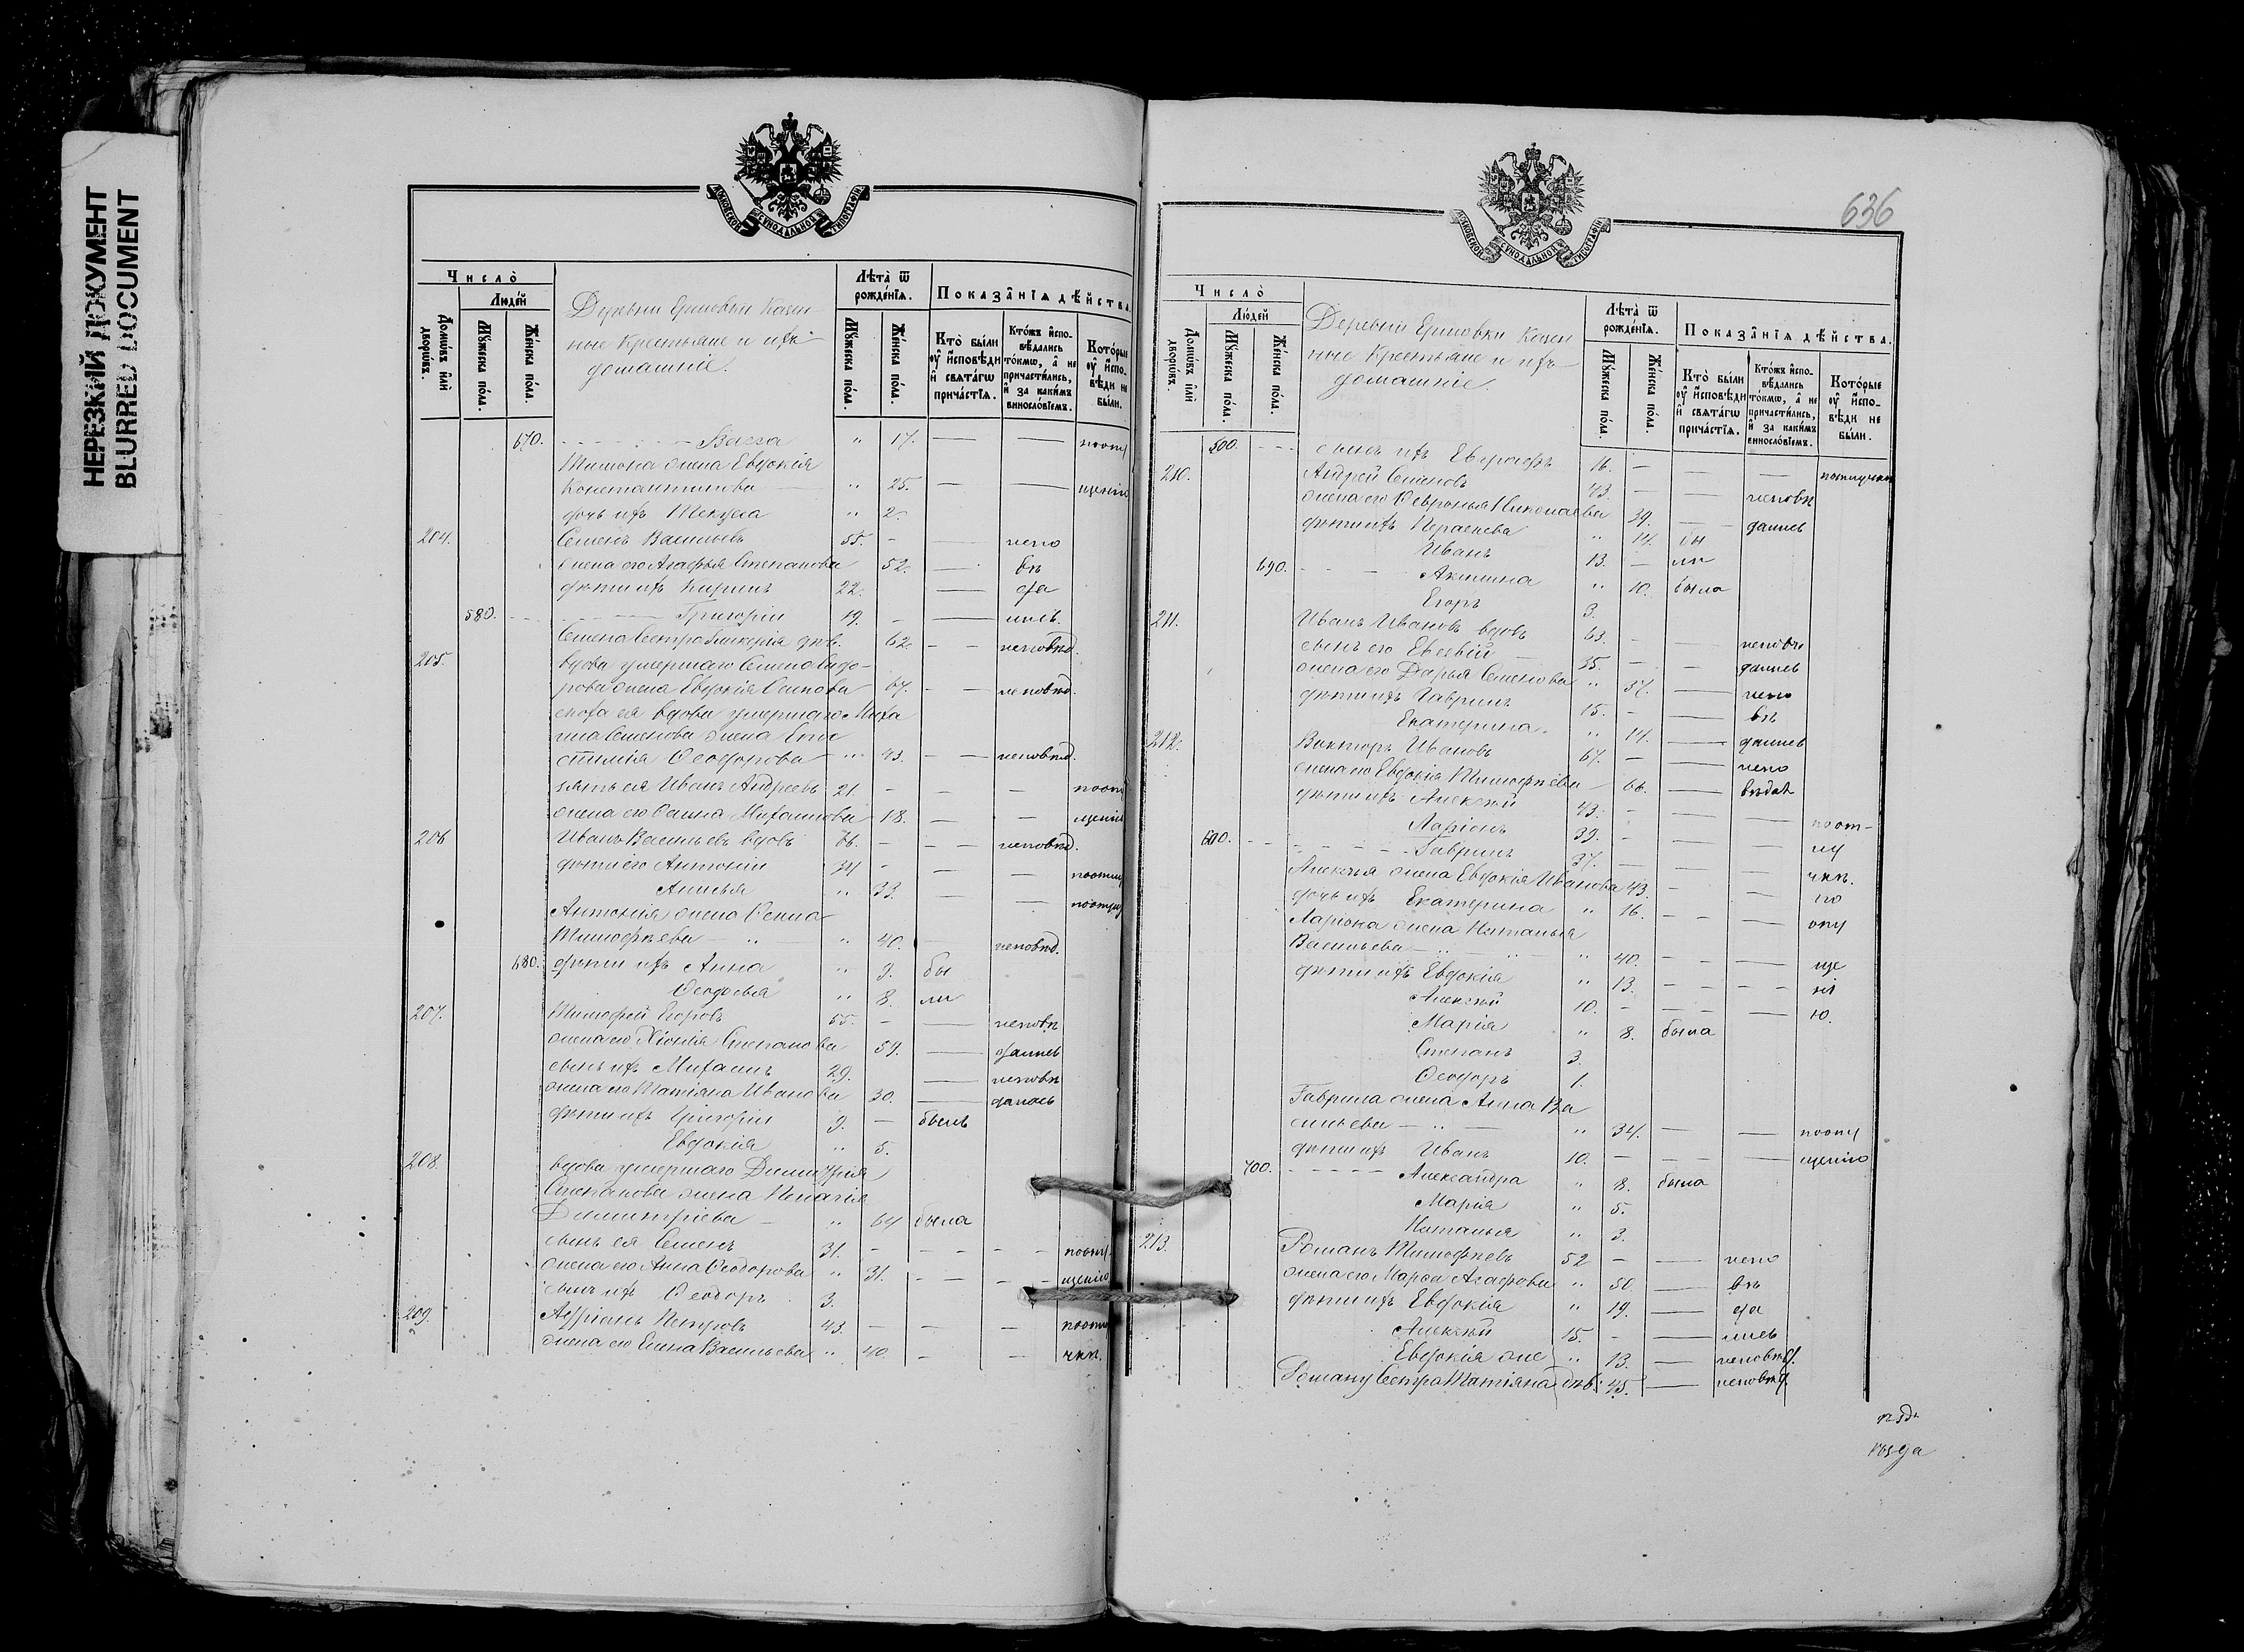 НЕРЕЗКИЙ ДОКУМЕНТ
BLURRED DOCUMENT
МОСКОВСКОЙ СѴНОДАЛЬНОЙ ТИПОГРАФІИ
Число̀
Людей
Домѡвъ и҆лѝ дворѡвъ.
Мꙋ́жеска по́ла.
Же́нска по́ла.
Деревни Ершовки Казен
ные Крестьяне и ихъ
домашніе.
Лѣта̀ ѿ рожде́нїѧ.
Мꙋ́жеска по́ла.
Же́нска по́ла.
Показа̑нїѧ дѣ́йства.
Кто̀ бы́ли ᲂу҆ и҆сповѣди и҆ свѧта́гѡ прича́стїѧ.
Кто́жъ и҆спо-вѣдались то́кмѡ, а҆ не причасти́лись, и҆ за каки́мъ винословїемъ.
Кото́рые ᲂу҆ и҆спо-вѣди не бы́ли.
670. Васса " 17. — — поопу
Тимона жена Евдокія
Константинова " 25. — — щенію
дочь ихъ Текуса " 2.
204. Семенъ Васильевъ 55. - — испо
жена его Агафья Степанова 52. — вѣ
дѣти ихъ Кирилъ 22. — да
580. Григорій 19. - — лись.
Семена Сестра Гликерія дѣв. 62 - - исповѣд.
205. вдова умершаго Семена Сидо-
рова жена Евдокія Осипова 67. - - исповѣд.
сноха ея вдова умершаго Миха
ила Семенова жена Епи
стимія Ѳеодорова " 43. - — исповѣд.
зять ея Иванъ Андреевъ 21. - - — поопу
жена его Ѳаина Михаилова 18. — — щенію
206 Иванъ Васильевъ вдовъ 66. - - - исповѣд.
дѣти его Антоній 34 - — — поопу
Анисья " 33. — — поопущ
Антонія жена Ѳекла
Тимофѣева " 40. — исповѣд.
680. дѣти ихъ Анна " 9. бы
Ѳеодосья " 8. ли
207. Тимофей Егоровъ 55. - — исповѣ
жена его Хіонія Степанова 59. — дались
сынъ ихъ Михаилъ 29. — исповѣ
жена его Татіана Иванова 30. — далась
дѣти ихъ Григорій 9. — былъ
Евдокія " 5.
208. вдова умершаго Димитрія
Степанова жена Пелагія
Димитріева " 64 была
сынъ ея Семенъ 31. - - - - - поопу
жена его Анна Ѳеодорова " 31. - — - - щенію
сынъ ихъ Ѳеодоръ 3.
209. Адріанъ Петровъ 43. — — — поотлу
жена его Елена Васильева " 40. - — чкѣ.
636
МОСКОВСКОЙ СѴНОДАЛЬНОЙ ТИПОГРАФІИ
Число̀
Людей
Домѡвъ и҆лѝ дворѡвъ.
Мꙋ́жеска по́ла.
Же́нска по́ла.
Деревни Ершовки Казен
ные Крестьяне и ихъ
домашніе.
Лѣта̀ ѿ рожде́нїѧ.
Мꙋ́жеска по́ла.
Же́нска по́ла.
Показа̑нїѧ дѣ́йства.
Кто̀ бы́ли ᲂу҆ и҆сповѣди и҆ свѧта́гѡ прича́стїѧ.
Кто́жъ и҆спо-вѣдались то́кмѡ, а҆ не причасти́лись, и҆ за каки́мъ винословїемъ.
Кото́рые ᲂу҆ и҆спо-вѣди не бы́ли.
590. сынъ ихъ Евграфъ 16. — — —
210. Андрей Семеновъ 43. — — исповѣ
жена его Ѳевронья Николаева 39. — дались
дѣти ихъ Парасковья " 14. бы
Иванъ 13. — ли
690. Акилина " 10. была
Егоръ 3.
211. Иванъ Ивановъ вдовъ 63. - — исповѣ
сынъ его Евсевій 35. - - дались
жена его Дарья Семенова " 37. — испо
дѣти ихъ Гаврилъ 15. - — вѣ
Екатерина " 14. — дались
212. Викторъ Ивановъ 67. — — испо
жена его Евдокія Тимофѣева 66. — вѣдал
дѣти ихъ Алексѣй 43. - — — поот-
Ларіонъ 39. - — — лу
600. Гаврилъ 37. — — — чкѣ.
Алексѣя жена Евдокія Иванова 43. — — по
дочь ихъ Екатерина " 16. - - — опу
Ларіона жена Наталья
Васильева " 40. - - — ще
дѣти ихъ Евдокія " 13. - - - - ні
Алексѣй 10. - - - — ю.
Марія " 8. была
Степанъ 3.
Ѳеодоръ 1.
Гаврила жена Анна Ва
сильева " 34. — — поопу
дѣти ихъ Иванъ 10. - - - — щенію
700. Александра " 8. была
Марія " 5.
Наталья " 3.
213. Романъ Тимофѣевъ 52 — — испо
жена его Марѳа Агафова " 50. — вѣ
дѣти ихъ Евдокія " 19. — да
Алексѣй 15. - — лись
Евдокія же " 13. — исповѣд.
Роману Сестра Татіана дѣв. 45. — исповѣд.